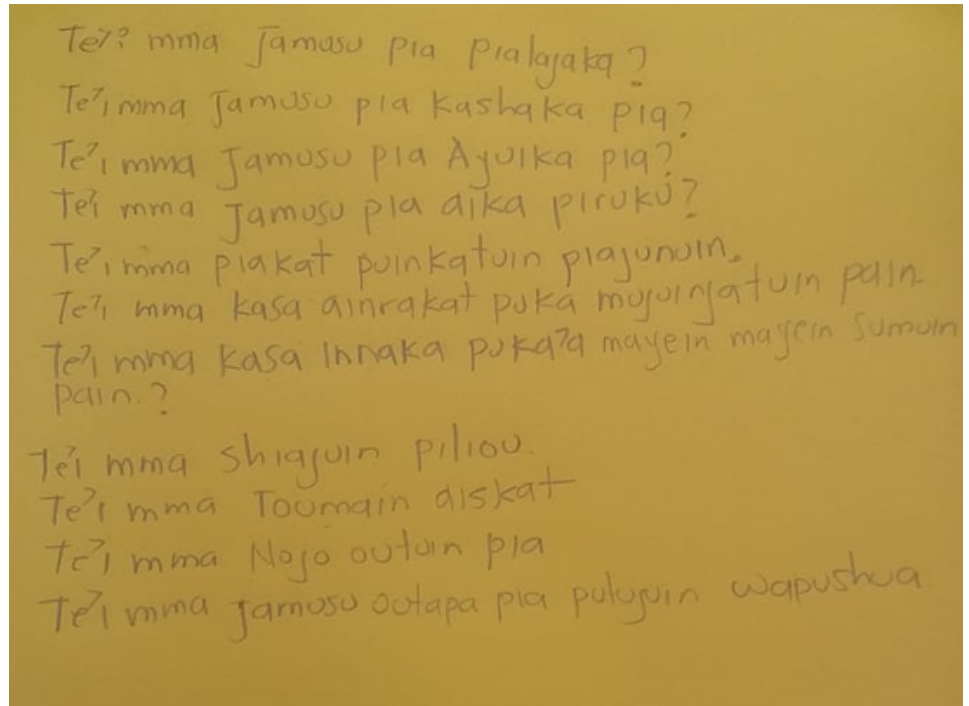 Te'? mma Jamusu pia pialajaka?
Te'i mma Jamusu pia kashaka pia?
Te'i mma Jamusu pia Ayulka pia?
Te'i mma Jamusu pia aika piruku?
Te'i mma piakat puinkatuin piajunuin.
Te'i mma kasa ainrakat puka mujuinjatuin pain.
Te'i mma kasa innaka puka'a mayein mayein sumuin
pain.?
Te'i mma shiajuin piliou.
Te'i mma Toumain aiskat
Te'i mma Nojo outuin pia
Te'i mma Jamusu outapa pia pulujuin wapushua